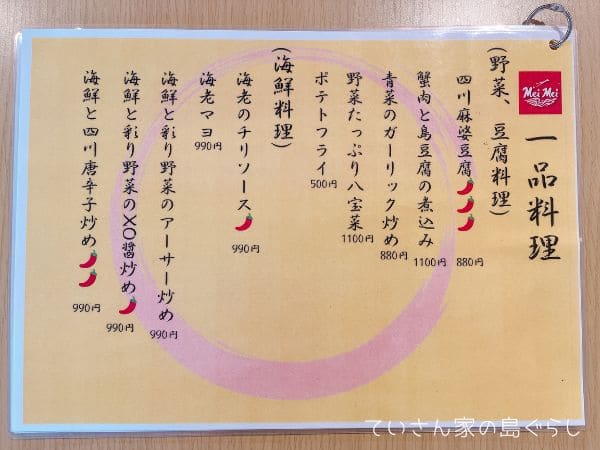 Mei Mei
一品料理
(野菜、豆腐料理)
四川麻婆豆腐 880円
蟹肉と島豆腐の煮込み 1100円
青菜のガーリック炒め 880円
野菜たっぷり八宝菜 1100円
ポテトフライ 500円
(海鮮料理)
海老のチリソース 990円
海老マヨ 990円
海鮮と彩り野菜のアーサー炒め 990円
海鮮と彩り野菜のXO醤炒め 990円
海鮮と四川唐辛子炒め 990円
てぃさん家の島ぐらし